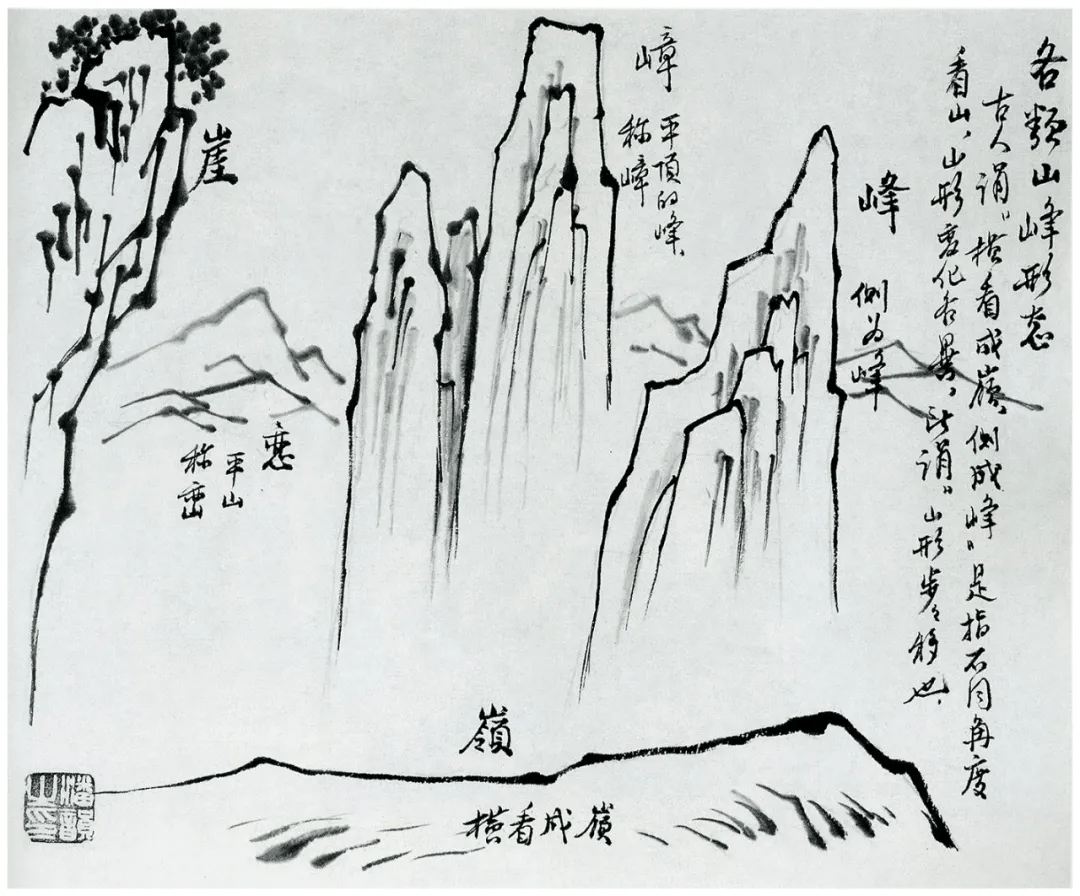 各類山峰形态
古人谓“横看成嶺、侧成峰”是指不同角度
看山，山形变化各異，此谓“山形步々移也、
峰
侧为峰
嶂
平頂的峰、
称嶂
崖
峦
平山
称峦
嶺
横看成嶺
潘韻之印